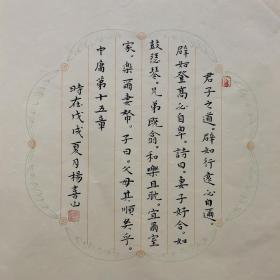 君子之道。辟如行遠必自邇
辟如登高必自卑。詩曰。妻子好合。如
鼓瑟琴。兄弟既翕。和樂且耽。宜爾室
家。樂爾妻帑。子曰。父母其順矣乎。
中庸第十五章
時在戊戌夏月楊壽山